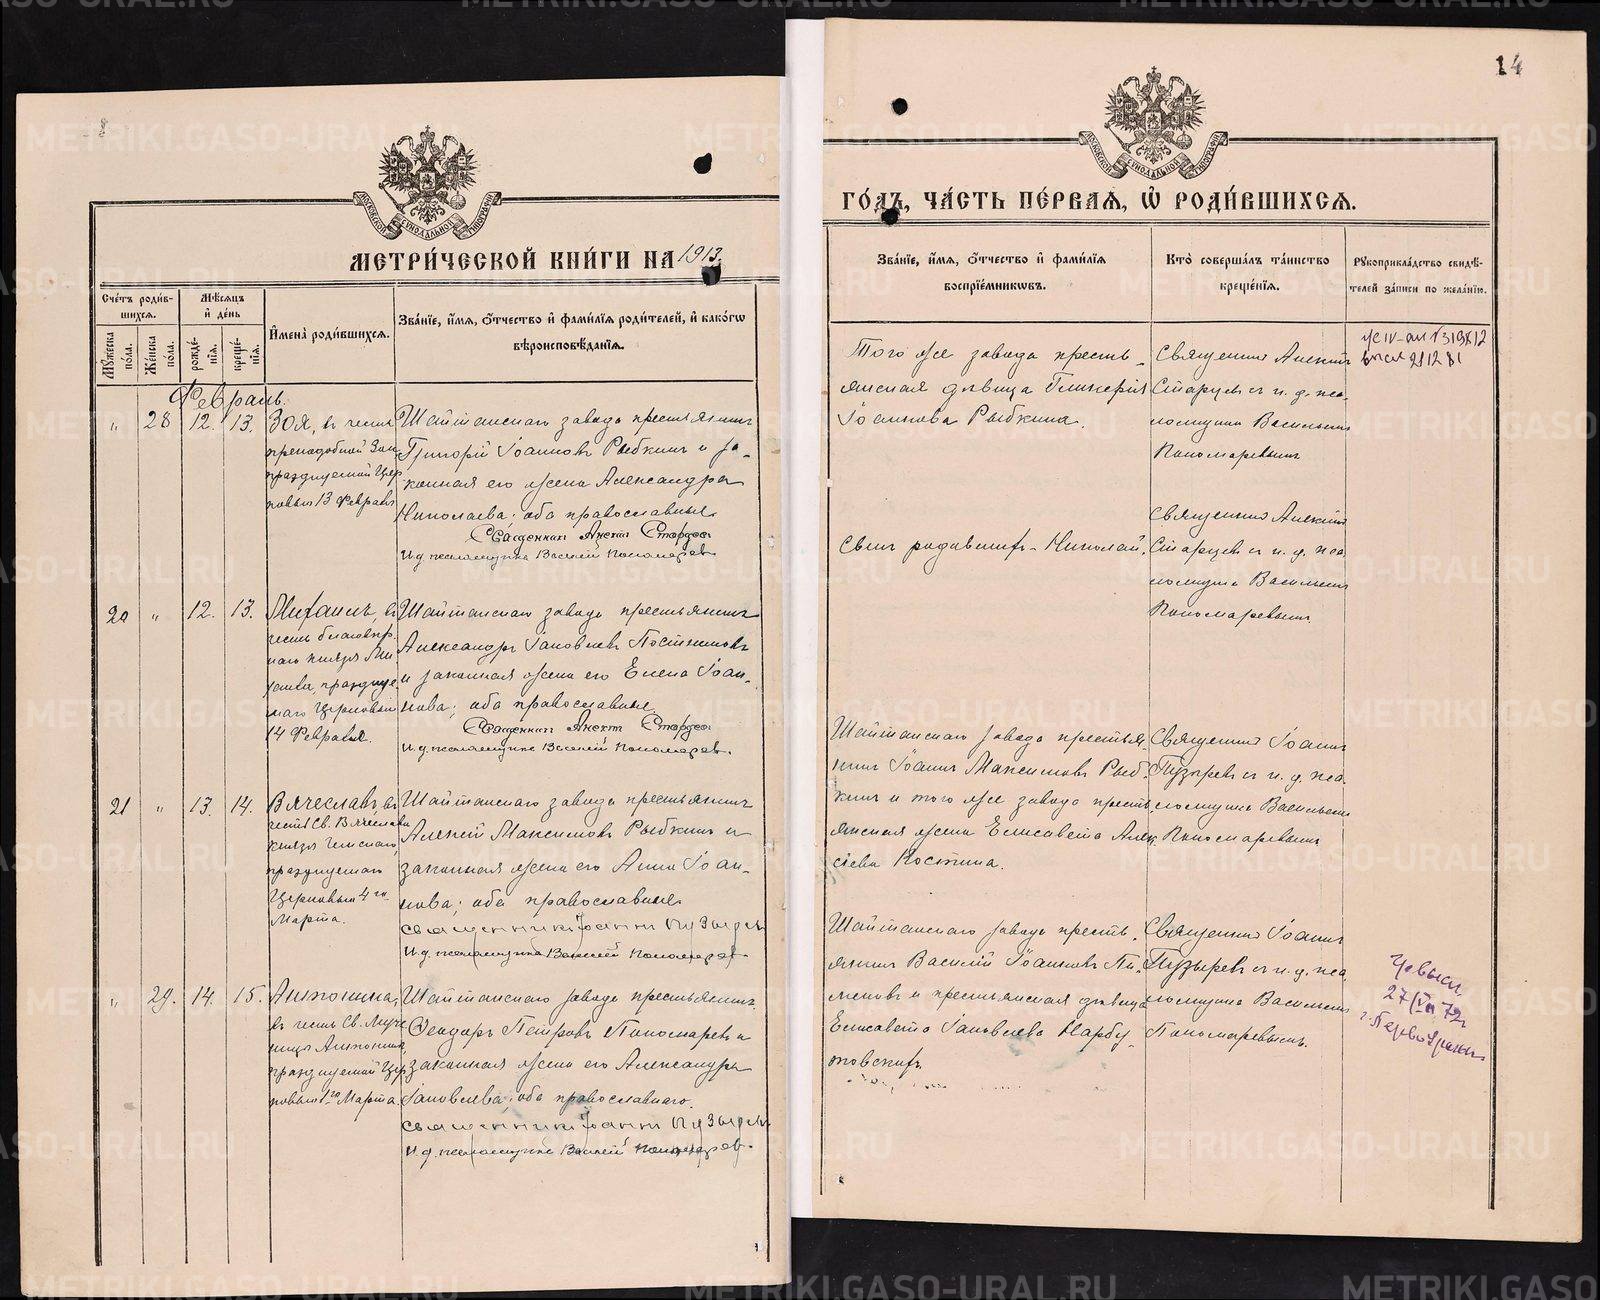 МЕТРИ́ЧЕСКОЙ КНИ́ГИ НА 1913.
Сче́тъ роди́в-
шихся.
Мѣсяцъ
и҆ де́нь
Му́жеска по́ла.
Же́нска по́ла.
рожде́-
нїѧ.
креще́-
нїѧ.
И҆мена̀ роди́вшихсѧ.
Зва́нїе, и҆́мѧ, ѻ҆́тчество и҆ фами́лїѧ роди́телей, и҆ како́гѡ
вѣроисповѣ́данїѧ.
Февраль.
" 28 12. 13. Зоя, въ честь
преподобной Зои
празднуемой Цер
ковью 13 Февраля
Шайтанскаго завода крестьянинъ
Григорій Іоанновъ Рыбкинъ и за-
конная его жена Александра
Николаева; оба православные.
Священникъ Старцевъ
И. д. псаломщика Василій Пономаревъ
20 " 12. 13. Михаилъ, въ
честь благовѣр
наго князя Ми
хаила, праздnуе
маго Церковью
14 Февраля.
Шайтанскаго завода крестьянинъ
Александръ Іаковлевъ Постниковъ
и законная жена его Елена Іоан-
нова; оба православные.
Священникъ Старцевъ
И. д. псаломщика Василій Пономаревъ.
21 " 13. 14. Вячеславъ, въ
честь Св. Вячеслава
князя Чешскаго,
празднуемаго
Церковью 4го
Марта.
Шайтанскаго завода крестьянинъ
Алексѣй Максимовъ Рыбкинъ и
законная жена его Анна Іоан-
нова; оба православные
священникъ Іоаннъ Пузыревъ
И. д. псаломщика Василій Пономаревъ
" 29. 14. 15. Антонина,
въ честь Св. Муче
ницы Антонины
празднуемой Цер
ковью 1го Марта.
Шайтанскаго завода крестьянинъ
Ѳеодоръ Петровъ Пономаревъ и
законная жена его Александра
Іаковлева; оба православнаго.
священникъ Іоаннъ Пузыревъ
И. д. псаломщика Василій Пономаревъ.
14
ГО́ДЪ, ЧА́СТЬ ПЕ́РВАѦ, Ѡ҆ РОДИ́ВШИХСѦ.
Зва́нїе, и҆́мѧ, ѻ҆́тчество и҆ фами́лїѧ
воспрїе́мникѡвъ.
Кто̀ соверша́лъ та́инство
креще́нїѧ.
Рꙋкоприкла́дство свидѣ́-
телей за́писи по жела́нїю.
Того же завода кресть-
янская дѣвица Гликерія
Іоаннова Рыбкина.
Священникъ Алексій
Старцевъ съ и. д. пса-
ломщика Василіемъ
Пономаревымъ
Сынъ родившихъ - Николай.
Священникъ Алексій
Старцевъ съ и. д. пса
ломщика Василіемъ
Пономаревымъ
Шайтанскаго завода крестья
нинъ Іоаннъ Максимовъ Рыб-
кинъ и того же завода кресть
янская жена Елисавета Алек
сіева Костина.
Священникъ Іоаннъ
Пузыревъ съ и. д. пса-
ломщика Василіемъ
Пономаревымъ
Шайтанскаго завода кресть-
янинъ Василій Іоанновъ Пи-
меновъ и крестьянская дѣвица
Елисавета Іаковлева Нарбу-
товскихъ
Священникъ Іоаннъ
Пузыревъ съ и. д. пса
ломщика Василіемъ
Пономаревымъ.
27/VII 72г
г. Первоуральск
METRIKI.GASO-URAL.RU